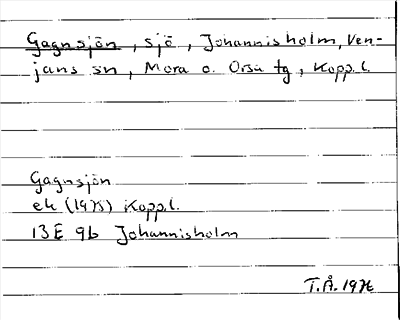 Gagnsjön, sjö, Johannisholm, Ven-
jans sn, Mora o. Orsa tg, Kopp.l.
Gagnsjön
ek (1975) Kopp.l.
13E 9b Johannisholm
T.Å. 1976